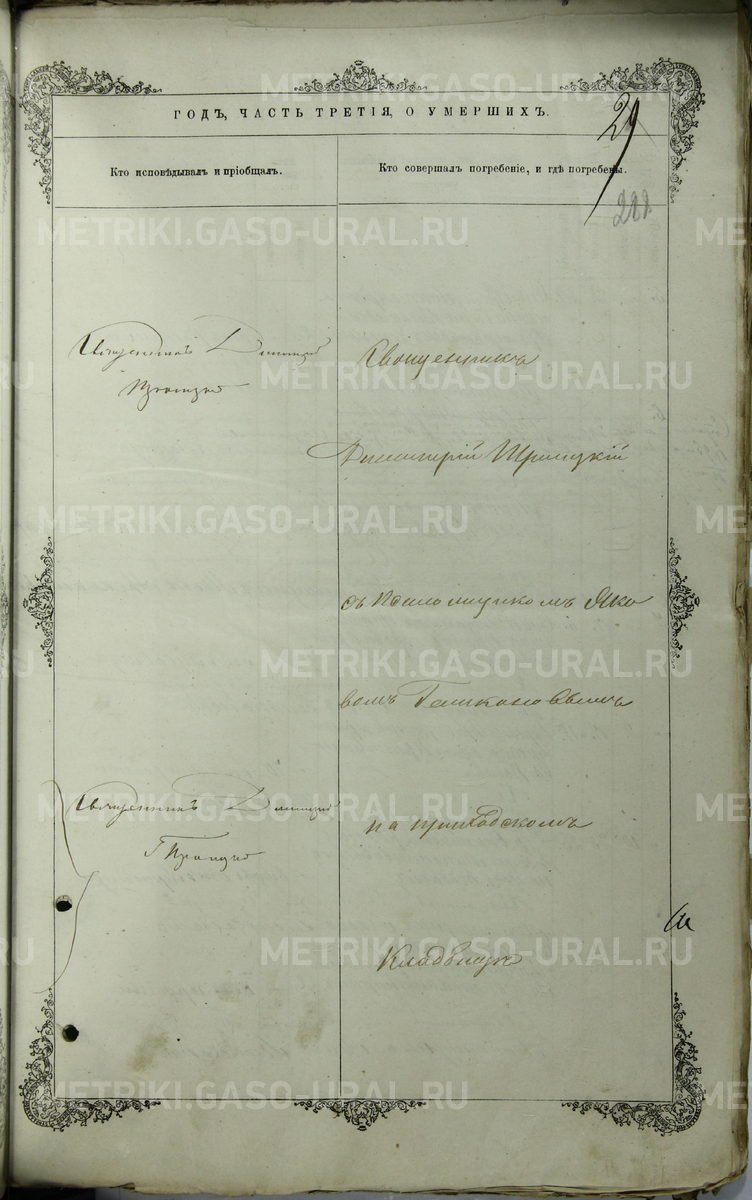 ГОДЪ, ЧАСТЬ ТРЕТІЯ, О УМЕРШИХЪ.
29
Кто исповѣдывалъ и пріобщалъ.
Кто совершалъ погребеніе, и гдѣ погребены.
Священникъ Димитрій
Троицкій
Священникъ
Димитрій Троицкій
съ псаломщикомъ Яко
вомъ
Священникъ Димитрій
Троицкій
на приходскомъ
кладбищѣ
METRIKI.GASO-URAL.RU